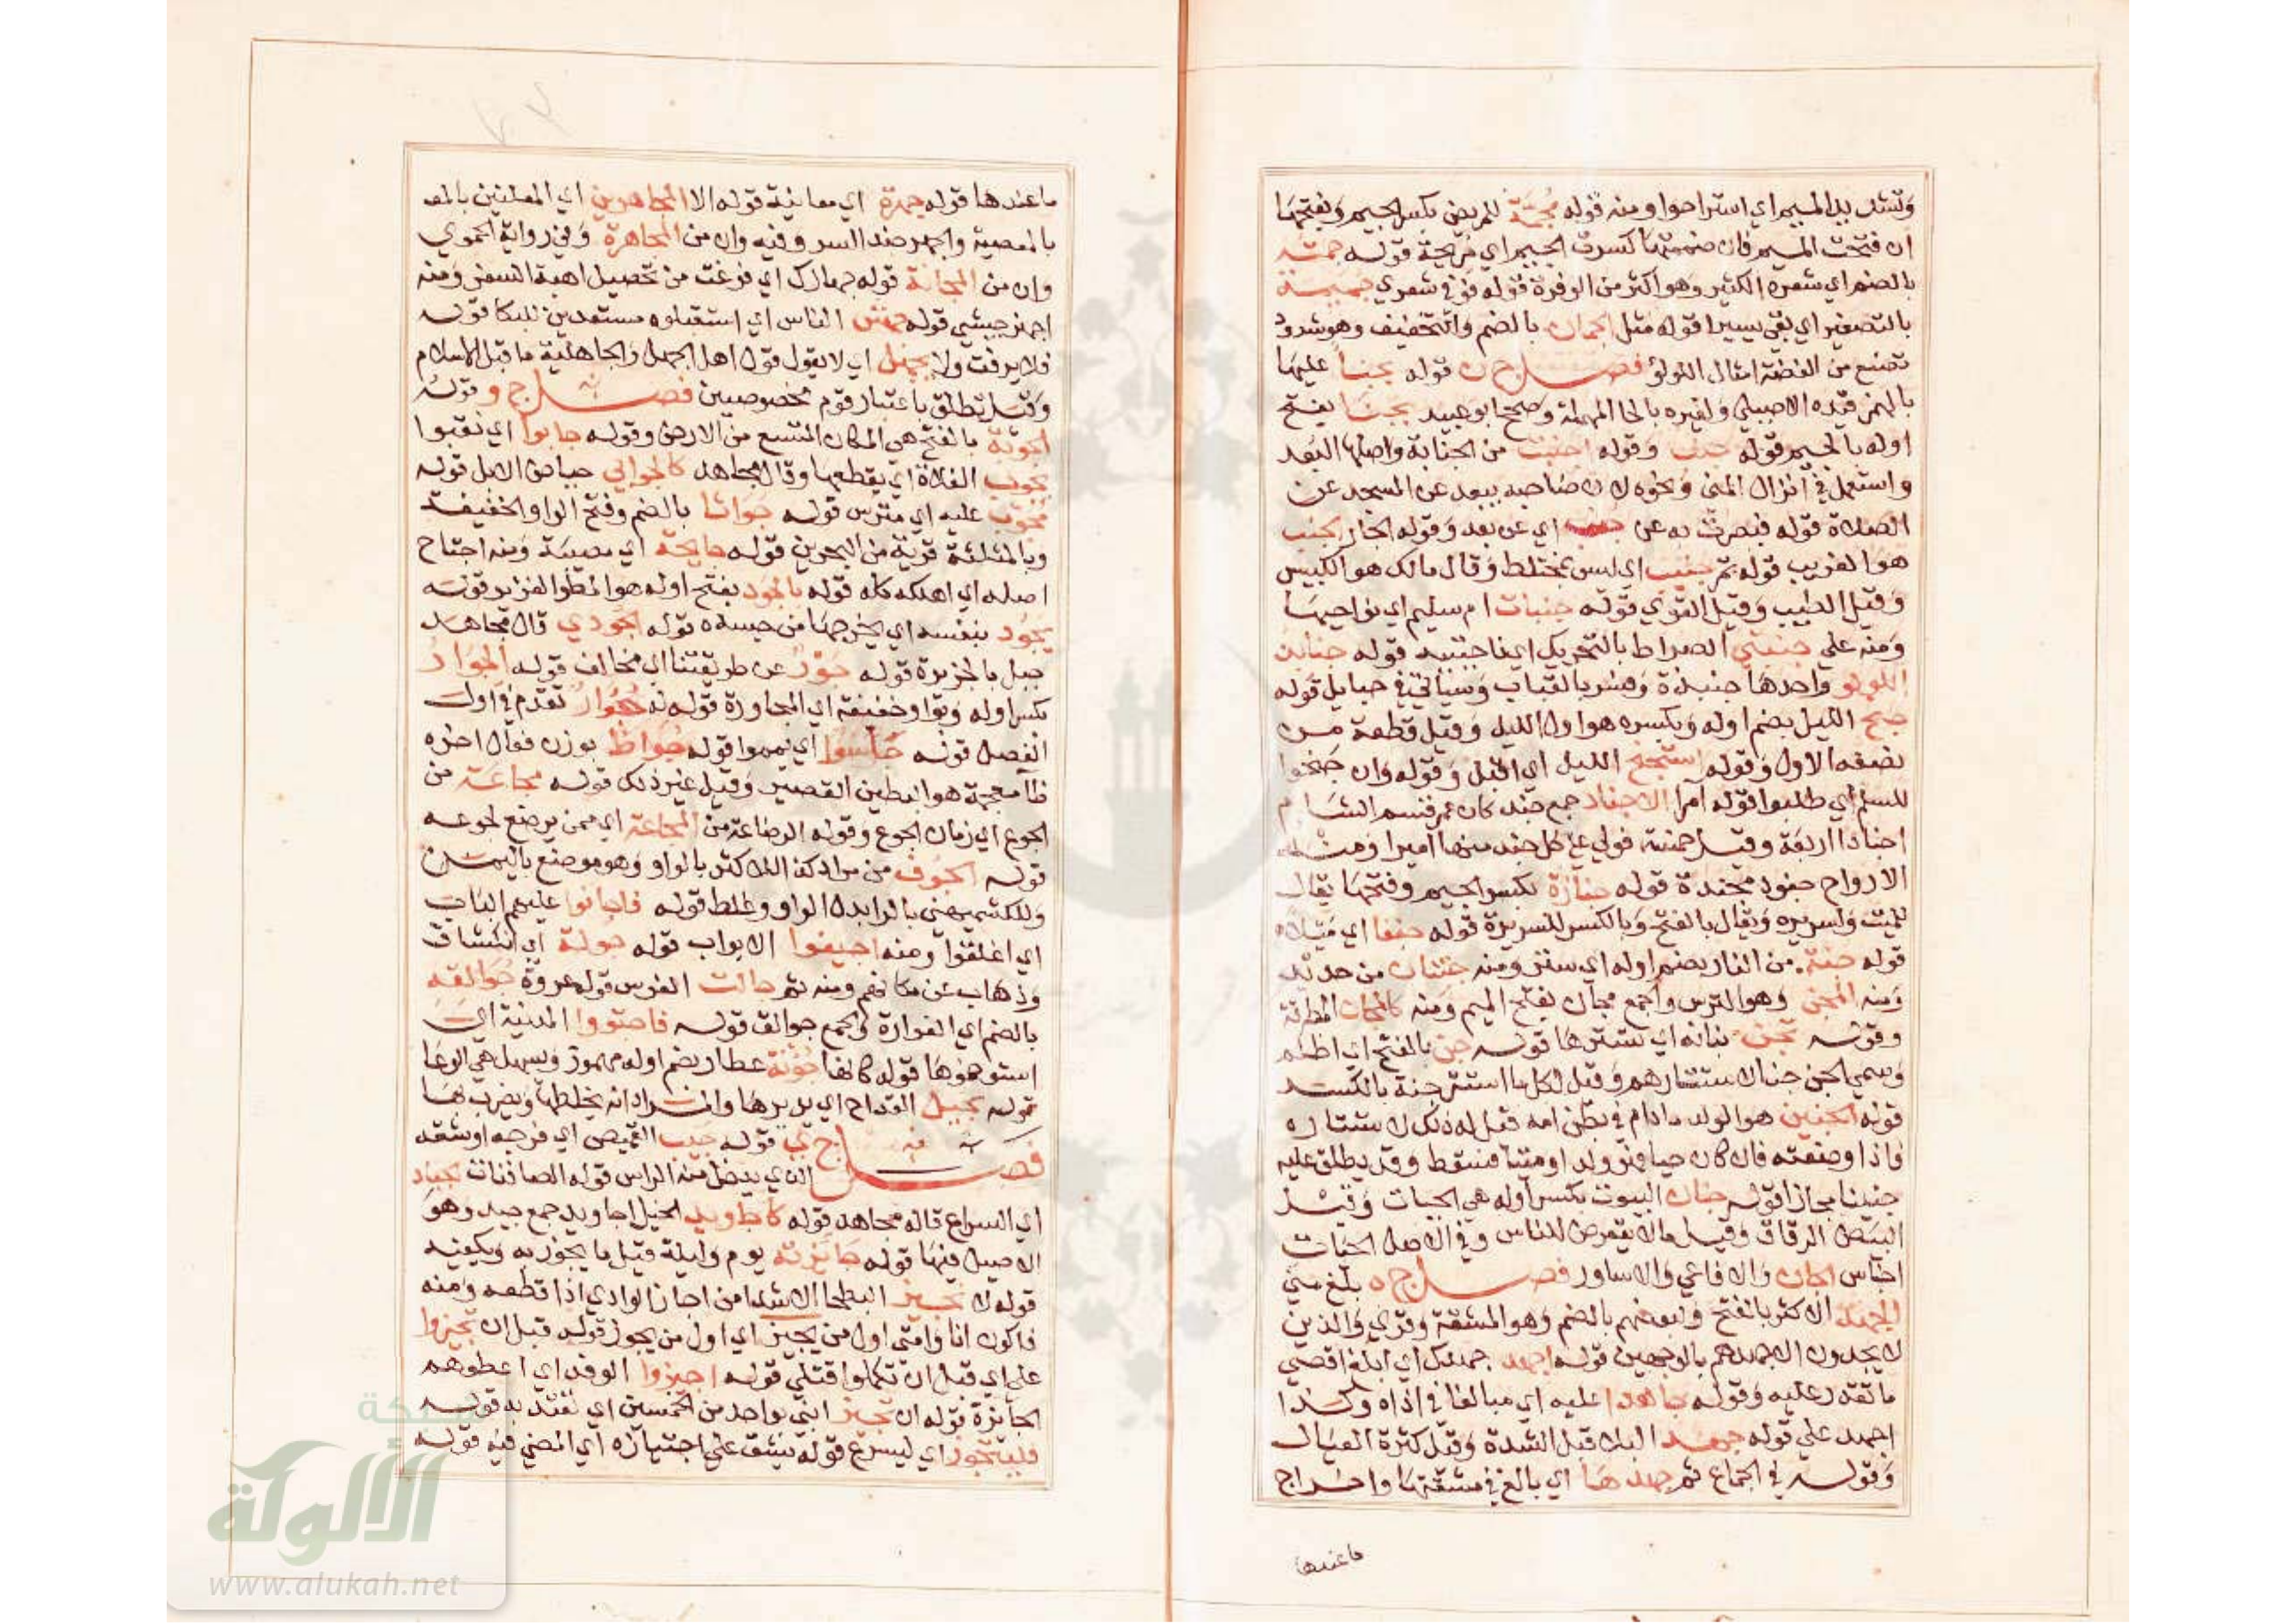 وتشديد الميم اي استراحوا ومنه قوله مجمة للمريض بكسر الجيم وبفتحها
ان فتحت الميم فان ضممتها كسرت الجيم اي مريحة قوله جمته
بالضم اي شعره الكثير وهو اكثر من الوفرة قوله فوفى شعري جميمة
بالتصغير اي بقي يسيرا قوله مثل الجمان بالضم والتخفيف وهو شدود
تصنع من الفضة امثال اللولؤ فصل ج ن قوله يجنا عليها
بالهمز قيده الاصيلي ولغيره بالحا المهملة وصحح ابو عبيد يجنا بفتح
اوله بالجيم قوله جنف وقوله اجنبت من الجنابة واصلها البعد
واستعمل في انزال المني ونحوه لان صاحبه يبعد عن المسجد عن
الصلاة قوله فبصرت به عن جنب اي عن بعد وقوله الجار الجنب
هو الغريب قوله تمر جنيب اي ليس بمختلط وقال مالك هو الكبيس
وقيل الطيب وقيل القوي قوله جنبات ام سليم اي نواحيها
ومنه علي جنبتي الصراط بالتحريك اي ناحيتيه قوله جنابذ
اللولو واحدها جنبذة وفسر بالقباب وسياتي في حبايل قوله
جنح الليل بضم اوله وبكسره هو اول الليل وقيل قطعة من
نصفه الاول وقوله استجنح الليل اي اقبل وقوله وان جنحوا
للسلم اي طلبوا قوله امرا الاجناد جمع جند كان عمر قسم الشام
اجنادا اربعة وقيل خمسة فولي علي كل جند منها اميرا ومثله
الارواح جنود مجندة قوله جنازة بكسر الجيم وفتحها يقال
للميت ولسريره ويقال بالفتح وبالكسر للسريرة قوله جنفا اي ميلا
قوله جنة من النار بضم اوله اي ستر ومنه جنتان من حديد
ومنه المجن وهو الترس والجمع مجان بفتح الميم ومنه كالمجان المطرقة
وقوله تجن بنانه اي تسترها قوله جن بالفتح اي اظلم
وسمي الجن جنا لاستتارهم وقيل لكل ما استتر جنة بالكسر
قوله الجنين هو الولد ما دام في بطن امه قيل له ذلك لاستتاره
فاذا وضعته فان كان حيا فهو ولد او ميتا فسقط وقد يطلق عليه
جنينا مجازا قوله جنان البيوت بكسر اوله هي الحيات وقيل
البيض الرقاق وقيل ما لا يتعرض للناس وفي الاصل الحيات
اجناس الجان والافاعي والاساور فصل ج ه بلغ مني
الجهد الاكثر بالفتح ولبعضهم بالضم وهو المشقة وقري والذين
لا يجدون الا جهدهم بالوجهين قوله اجهد جهدك اي ابلغ اقصي
ما تقدر عليه وقوله جاهدا عليه اي مبالغا في اذاه وكذا
اجهد علي قوله جهد البلا قيل الشدة وقيل كثرة العيال
وقوله في الجماع ثم جهدها اي بالغ في مشقتها واخراج
ما عندها
ما عندها قوله جهرة اي معاينة قوله الا المجاهرين اي المعلنين بالمع
بالمعصية والجهر ضد السر وفيه وان من المجاهرة وفي رواية الحموي
وان من المجانة قوله جهازك اي فرغت من تحصيل اهبة السفر ومنه
اجهز جيشي قوله جهش الناس اي استقبلوه مستعدين للبكا قوله
فلا يرفث ولا يجهل اي لا يقول قول اهل الجهل والجاهلية ما قبل الاسلام
وقيل تطلق باعتبار قوم مخصوصين فصل ج و قوله
الجوبة بالفتح هي المكان المتسع من الارض وقوله جابوا اي نقبوا
يجوب الفلاة اي يقطعها وقال مجاهد كالجوابي حياض الابل قوله
مجوب عليه اي مترس قوله جواثا بالضم وفتح الواو الخفيفة
وبالمثلثة قرية من البحرين قوله جايحة اي مصيبة ومنه اجتاح
اصله اي اهلكه كله قوله بالجود بفتح اوله هو المطر الغزير قوله
يجود بنفسه اي يخرجها من جسده قوله الجودي قال مجاهد
جبل بالجزيرة قوله جور عن طريقتنا اي مخالف قوله الجوار
بكسر اوله وبواو خفيفة اي المجاورة قوله له جوار تقدم في اول
الفصل قوله جاسوا اي يمموا قوله جواظ بوزن فعال اخره
ظا معجمة هو البطين القصير وقيل غير ذلك قوله مجاعة من
الجوع اي زمان الجوع وقوله الرضاعة من المجاعة اي ممن يرضع لجوعه
قوله الجوف من مراد كذا للاكثر بالواو وهو موضع باليمن
وللكشميهني بالرا بدل الواو وغلط قوله فاجافوا عليهم الباب
اي اغلقوا ومنه اجيفوا الابواب قوله جولة اي انكشاف
وذهاب عن مكانهم ومنه ثم جالت الفرس قوله عروة جوالقه
بالضم اي الغرارة والجمع جوالق قوله فاجتووا المدينة اي
استوخموها قوله كانها جؤنة عطار بضم اوله مهموز ويسهل هي الوعا
قوله يجيل القداح اي يديرها والمراد انه يخلطها ويضرب بها
فصل ج ي قوله جيب القميص اي فرجه او شقه
الذي يدخل منه الراس قوله الصافنات الجياد
اي السراع قاله مجاهد قوله كاجاويد الخيل اجاويد جمع جيد وهو
الاصيل فيها قوله جائزته يوم وليلة قيل ما يجوز به ويكفيه
قوله لا نجيز البطحا الا شدا من اجاز الوادي اذا قطعه ومنه
فاكون انا وامتي اول من يجيز اي اول من يجوز قوله قبل ان تجيزوا
علي اي قبل ان تكملوا قتلي قوله اجيزوا الوفد اي اعطوهم
الجائزة قوله ان تجيز ابني بواحد من الخمسين اي تفتديه قوله
فليتجوز اي ليسرع قوله يشق علي اجتيازه اي المضي فيه قوله
شبكة
الألوكة
www.alukah.net